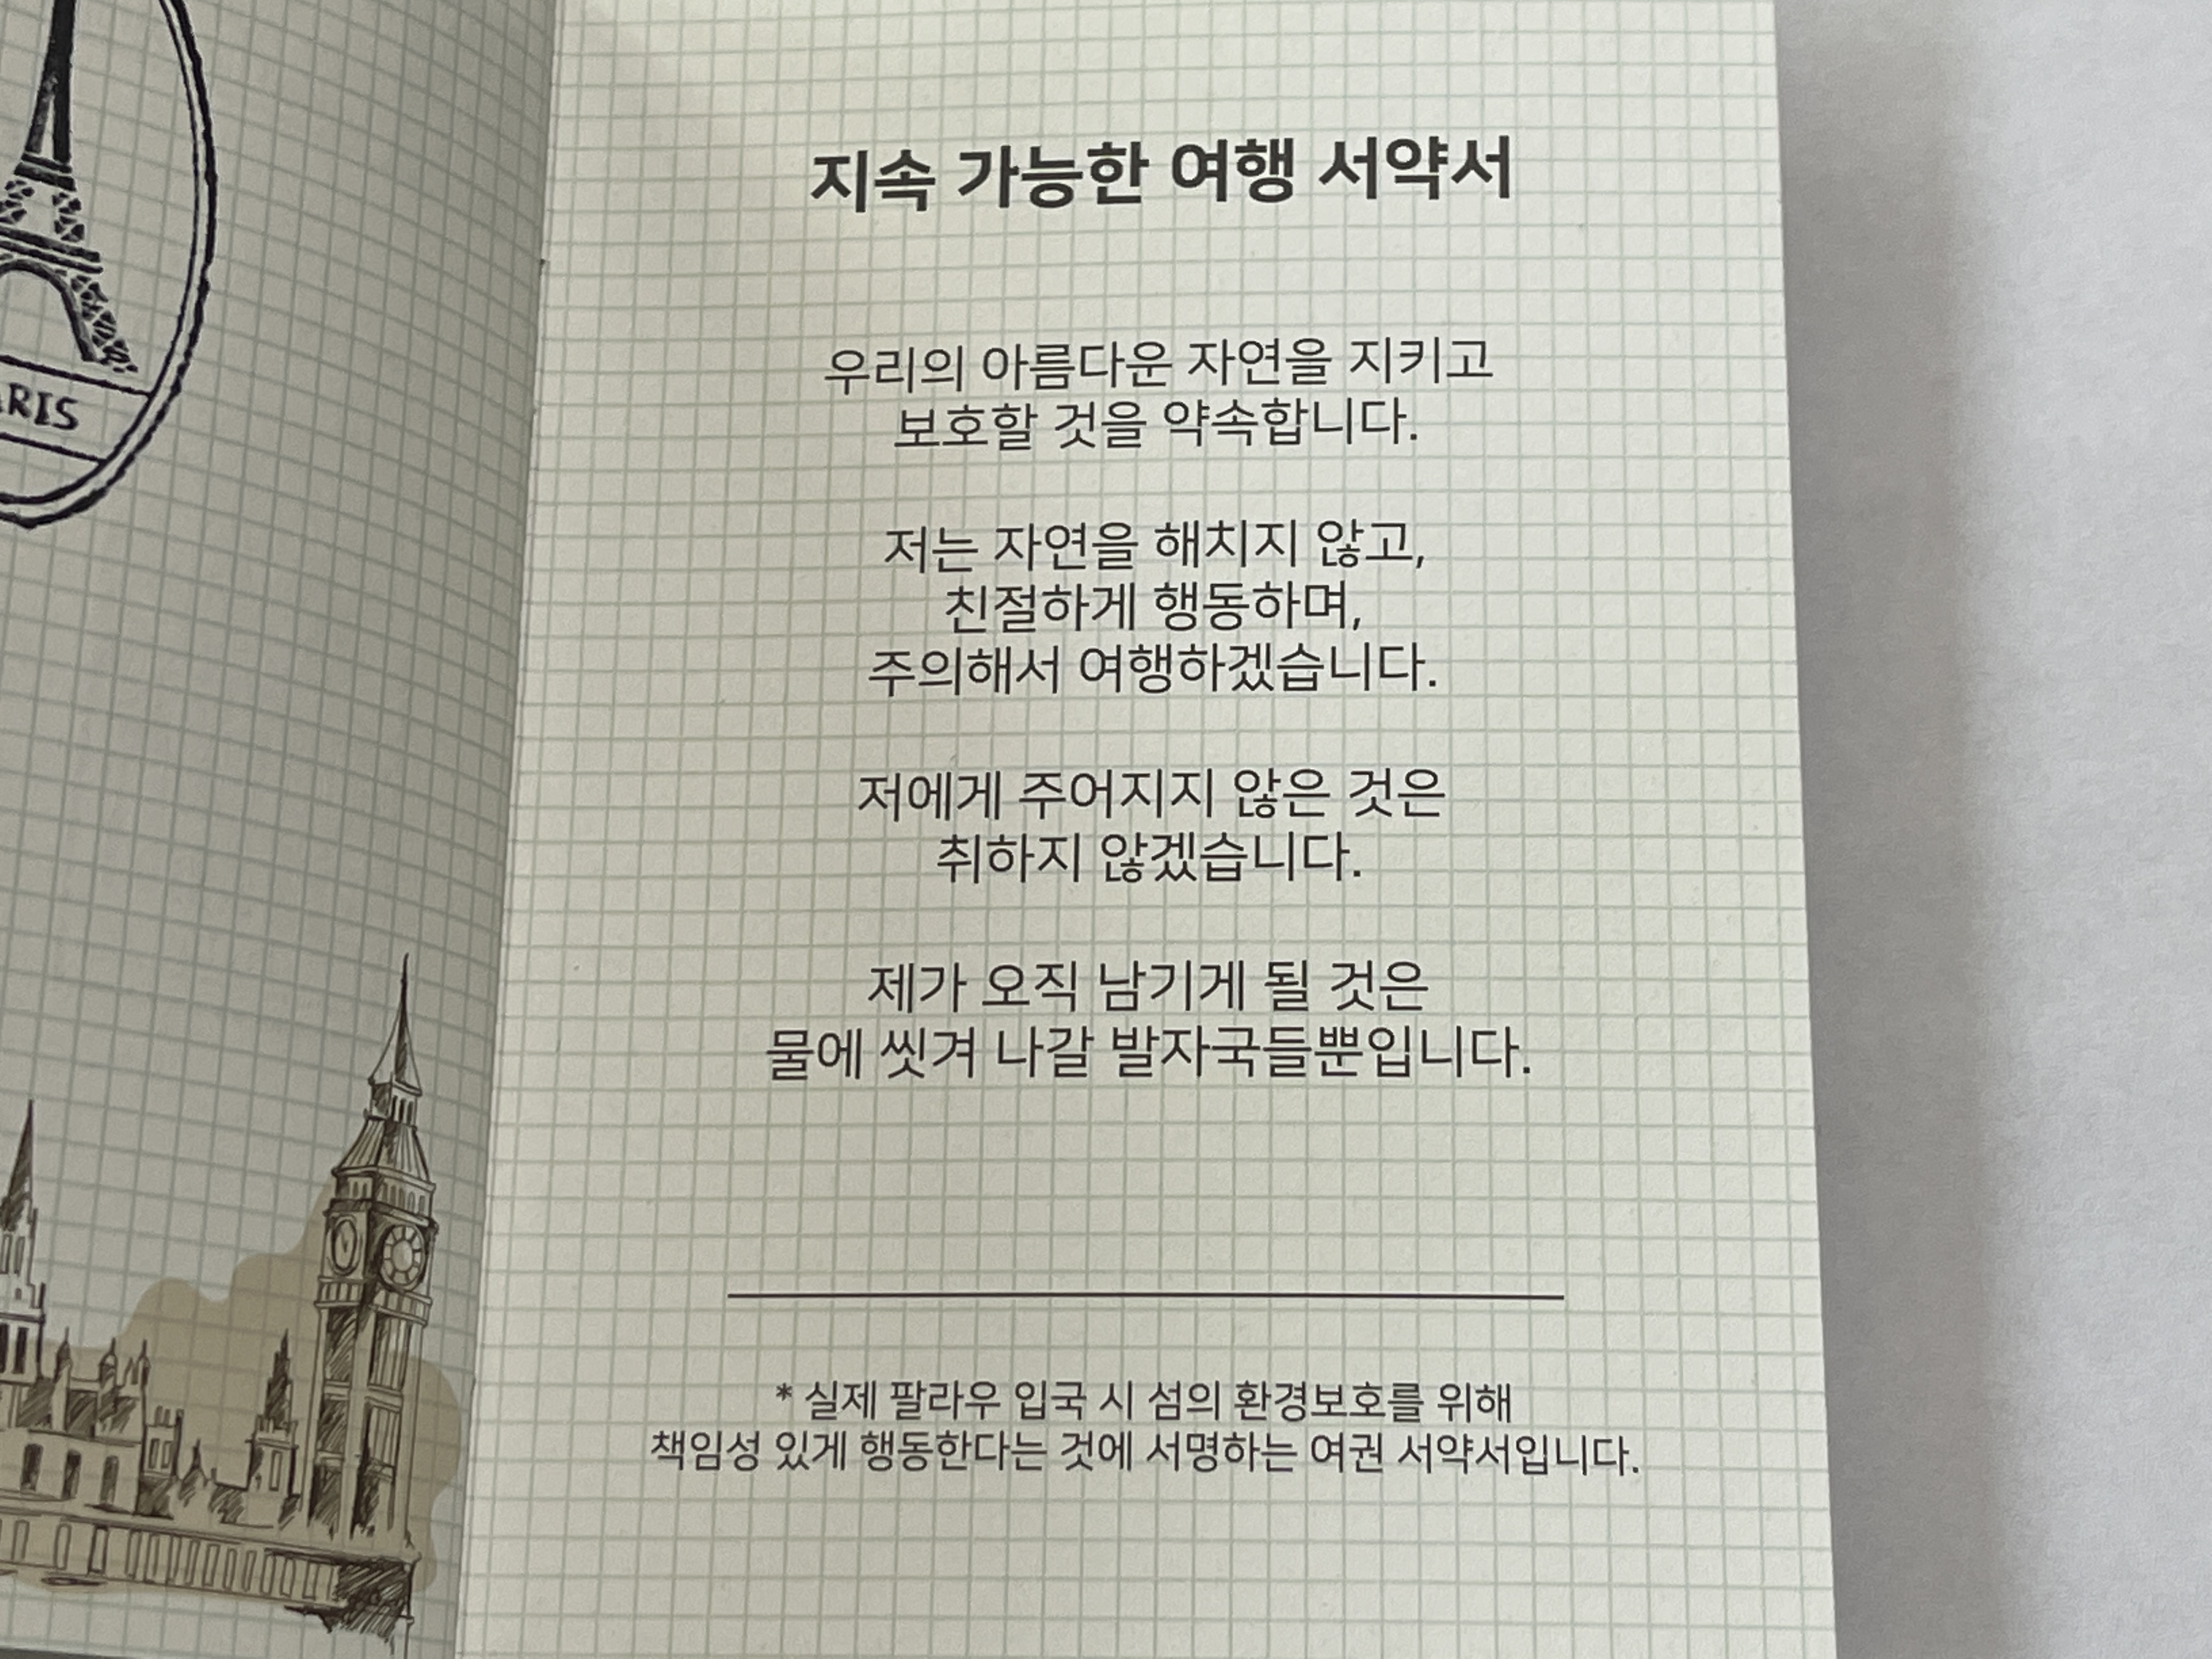 지속 가능한 여행 서약서
우리의 아름다운 자연을 지키고
보호할 것을 약속합니다.
저는 자연을 해치지 않고,
친절하게 행동하며,
주의해서 여행하겠습니다.
저에게 주어지지 않은 것은
취하지 않겠습니다.
제가 오직 남기게 될 것은
물에 씻겨 나갈 발자국들뿐입니다.
* 실제 팔라우 입국 시 섬의 환경보호를 위해
책임성 있게 행동한다는 것에 서명하는 여권 서약서입니다.